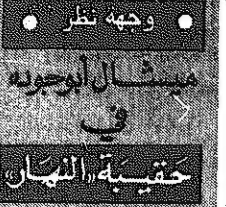 • وجهة نظر •
ميشال أبوجوده
في
حقيبة «النهار»